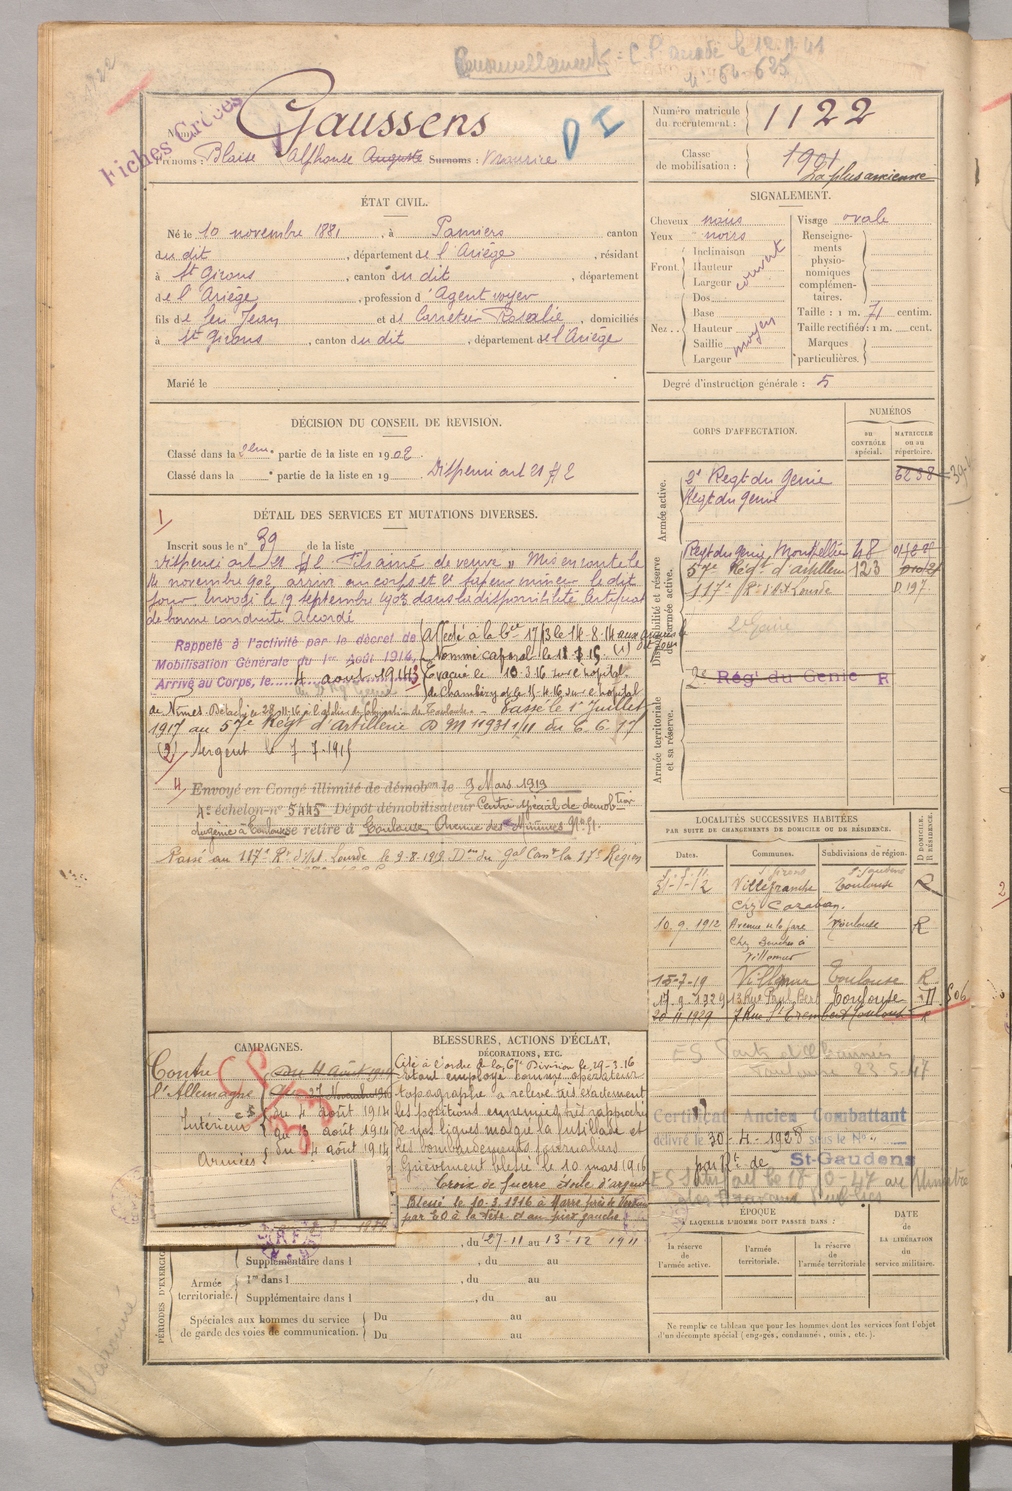 C. P. le 12.9.41
Fiches Grises
Gaussens
D I
Prénoms : Blaise Alphonse Auguste Surnoms : Maurice
Numéro matricule du recrutement : 1122
Classe de mobilisation : 1901
La plus ancienne
ÉTAT CIVIL.
Né le 10 novembre 1881, à Pamiers canton
du dit, département de l'Ariège, résidant
à St Girons, canton du dit, département
de l'Ariège, profession d'Agent voyer
fils de feu Jean et de Carretier Rosalie, domiciliés
à St Girons, canton du dit, département de l'Ariège
Marié le
SIGNALEMENT.
Cheveux noirs
Yeux noirs
Front Inclinaison
Hauteur
Largeur
couvert
Nez. Dos
Base
Hauteur
Saillie
Largeur
moyen
Visage ovale
Renseignements physionomiques complémentaires.
Taille : 1 m. 71 centim.
Taille rectifiée : 1 m. cent.
Marques particulières.
Degré d'instruction générale : 5
DÉCISION DU CONSEIL DE REVISION.
Classé dans la 2em. partie de la liste en 1902.
Classé dans la partie de la liste en 19 Dispensé art 21 § 2
CORPS D'AFFECTATION.
NUMÉROS
au CONTRÔLE spécial.
MATRICULE ou au répertoire.
Armée active.
2e Regt du Génie 6238
Regt du Génie
Disponibilité et réserve de l'armée active.
Regt du Génie, Montpellier 48
57e Regt d'Artillerie 123
117e R. d'Art Lourde D 197.
2e Génie
Armée territoriale et sa réserve.
2e Rég' du Génie R
DÉTAIL DES SERVICES ET MUTATIONS DIVERSES.
1
Inscrit sous le n° 39 de la liste
Dispensé art 21 § 2. Fils ainé de veuve. Mis en route le
14 novembre 902, arrivé au corps et 2e sapeur mineur le dit
jour. Envoyé le 19 septembre 1903 dans la disponibilité. Certificat
de bonne conduite Accordé
Rappelé à l'activité par le décret de
Mobilisation Générale du 1er Août 1914,
Arrivé au Corps, le 4 août 1914
Affecté à la Cie 17/3 le 14.8.14 aux armées le dit jour
Nommé caporal le
Evacué le 10.3.16 sur l'hôpital
de Chambéry et le 15.4.16 sur l'hôpital
de Nîmes. Passé le 1er Juillet
1917 au 57e Regt d'Artillerie D M 11931 1/11 du 6.6.17
(2) Sergent le 7-7-1915
4 Envoyé en Congé illimité de démobon le 9 Mars 1919
4e échelon n° 5445 Dépôt démobilisateur Centre spécial de démobtion
du génie à Toulouse se retire à Toulouse, Avenue des Minimes N° 51.
Passé au 117e R. d'Art. Lourde le 9-8-1919 Don du Gal Cant la 17e Région
LOCALITÉS SUCCESSIVES HABITÉES
PAR SUITE DE CHANGEMENTS DE DOMICILE OU DE RÉSIDENCE.
Dates. Communes. Subdivisions de région. D DOMICILE. R RÉSIDENCE.
Villefranche Toulouse R
Chez Cazaban.
10.9.1912 Avenue de la gare Toulouse R
Chez
Villemur
15-7-19 Villemur Toulouse R
17.9.1929 13 Rue Paul Bert Toulouse
20 11 1929
Certificat Ancien Combattant
délivré le 30-4-1928 sous le No
par Rt. de St-Gaudens
CAMPAGNES.
Contre l'Allemagne
du 4 Août 1914
Intérieur du 4 août 1914
au 13 août 1914
Armées du 14 août 1914
BLESSURES, ACTIONS D'ÉCLAT,
DÉCORATIONS, ETC.
Cité à l'ordre de la 67e Division le 29-3-16
étant employé comme opérateur
topographe a relevé très exactement
les positions ennemies très rapprochées
de nos lignes malgré la fusillade et
les bombardements journaliers
Grièvement blessé le 10 mars 1916
Croix de Guerre étoile d'argent
Blessé le 10-3-1916 à Marre près de Verdun
par EO à la tête et au pied gauche
PÉRIODES D'EXERCICES
, du 27-11 au 13-12 1911
Supplémentaire dans l , du au
Armée territoriale. 1re dans l , du au
Supplémentaire dans l , du au
Spéciales aux hommes du service de garde des voies de communication. Du au
Du au
ÉPOQUE
A LAQUELLE L'HOMME DOIT PASSER DANS :
la réserve de l'armée active.
l'armée territoriale.
la réserve de l'armée territoriale
DATE de LA LIBÉRATION du service militaire.
Ne remplir ce tableau que pour les hommes dont les services font l'objet
d'un décompte spécial (engagés, condamnés, omis, etc.).